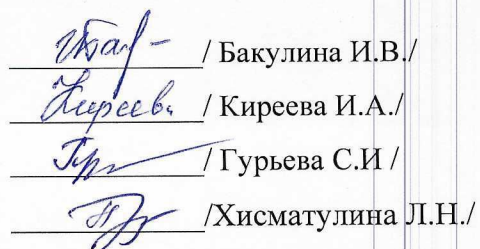 / Бакулина И.В./
Киреева / Киреева И.А./
/ Гурьева С.И /
/Хисматулина Л.Н./